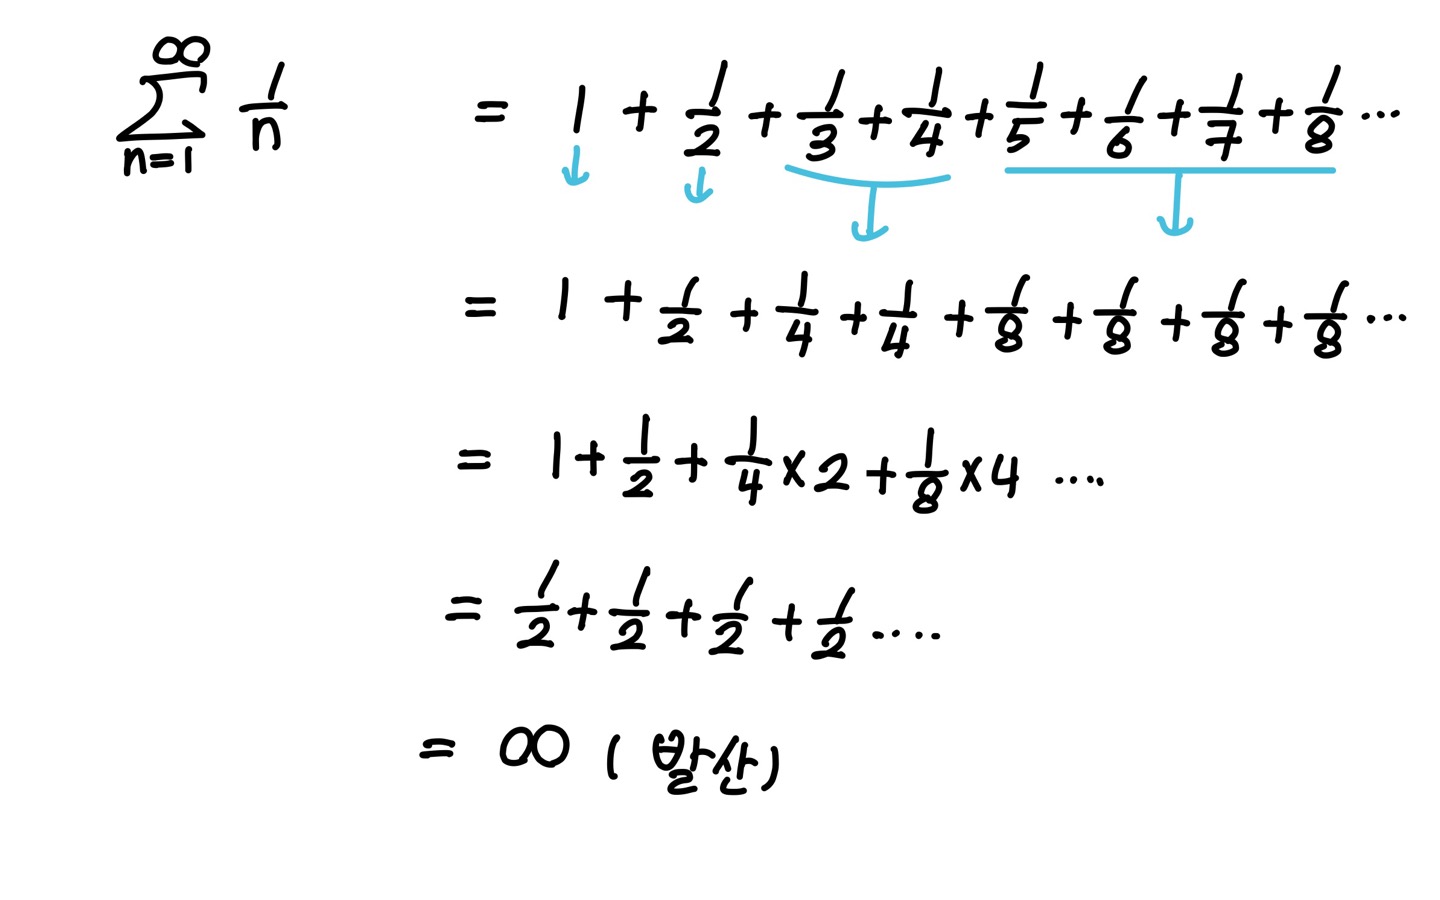 ∑_{n=1}^{∞} 1/n = 1 + 1/2 + 1/3 + 1/4 + 1/5 + 1/6 + 1/7 + 1/8 ...
= 1 + 1/2 + 1/4 + 1/4 + 1/8 + 1/8 + 1/8 + 1/8 ...
= 1 + 1/2 + 1/4 × 2 + 1/8 × 4 ....
= 1/2 + 1/2 + 1/2 + 1/2 ....
= ∞ ( 발산 )